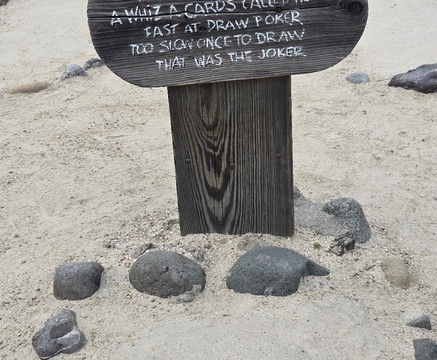 A WHIZ A CARDS CALLED
FAST AT DRAW POKER
TOO SLOW ONCE TO DRAW
THAT WAS THE JOKER